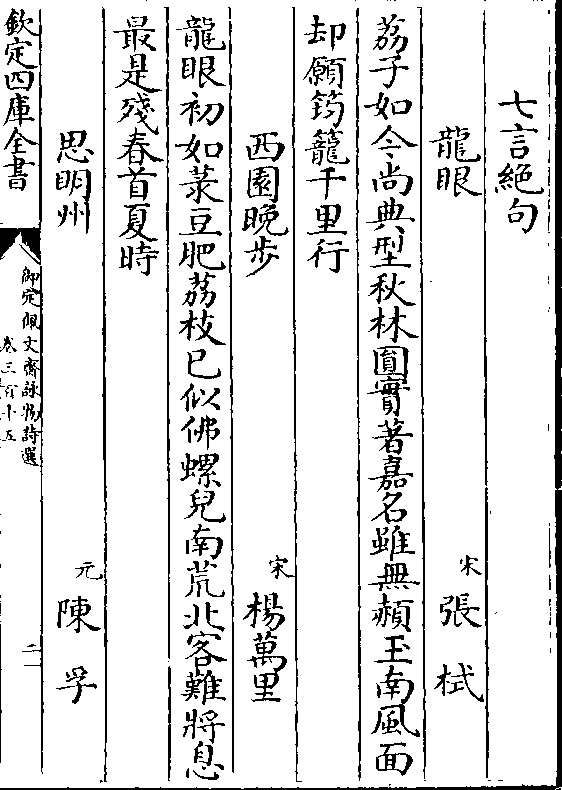 七言絶句
龍眼 宋 張栻
荔子如今尚典型秋林圓實著嘉名雖無頳玉南風面
却願筠籠千里行
西園晚步 宋 楊萬里
龍眼初如菉豆肥荔枝已似佛螺兒南荒北客難將息
最是殘春首夏時
思明州 元 陳孚
欽定四庫全書
御定佩文齋詠物詩選
卷三百十五
二